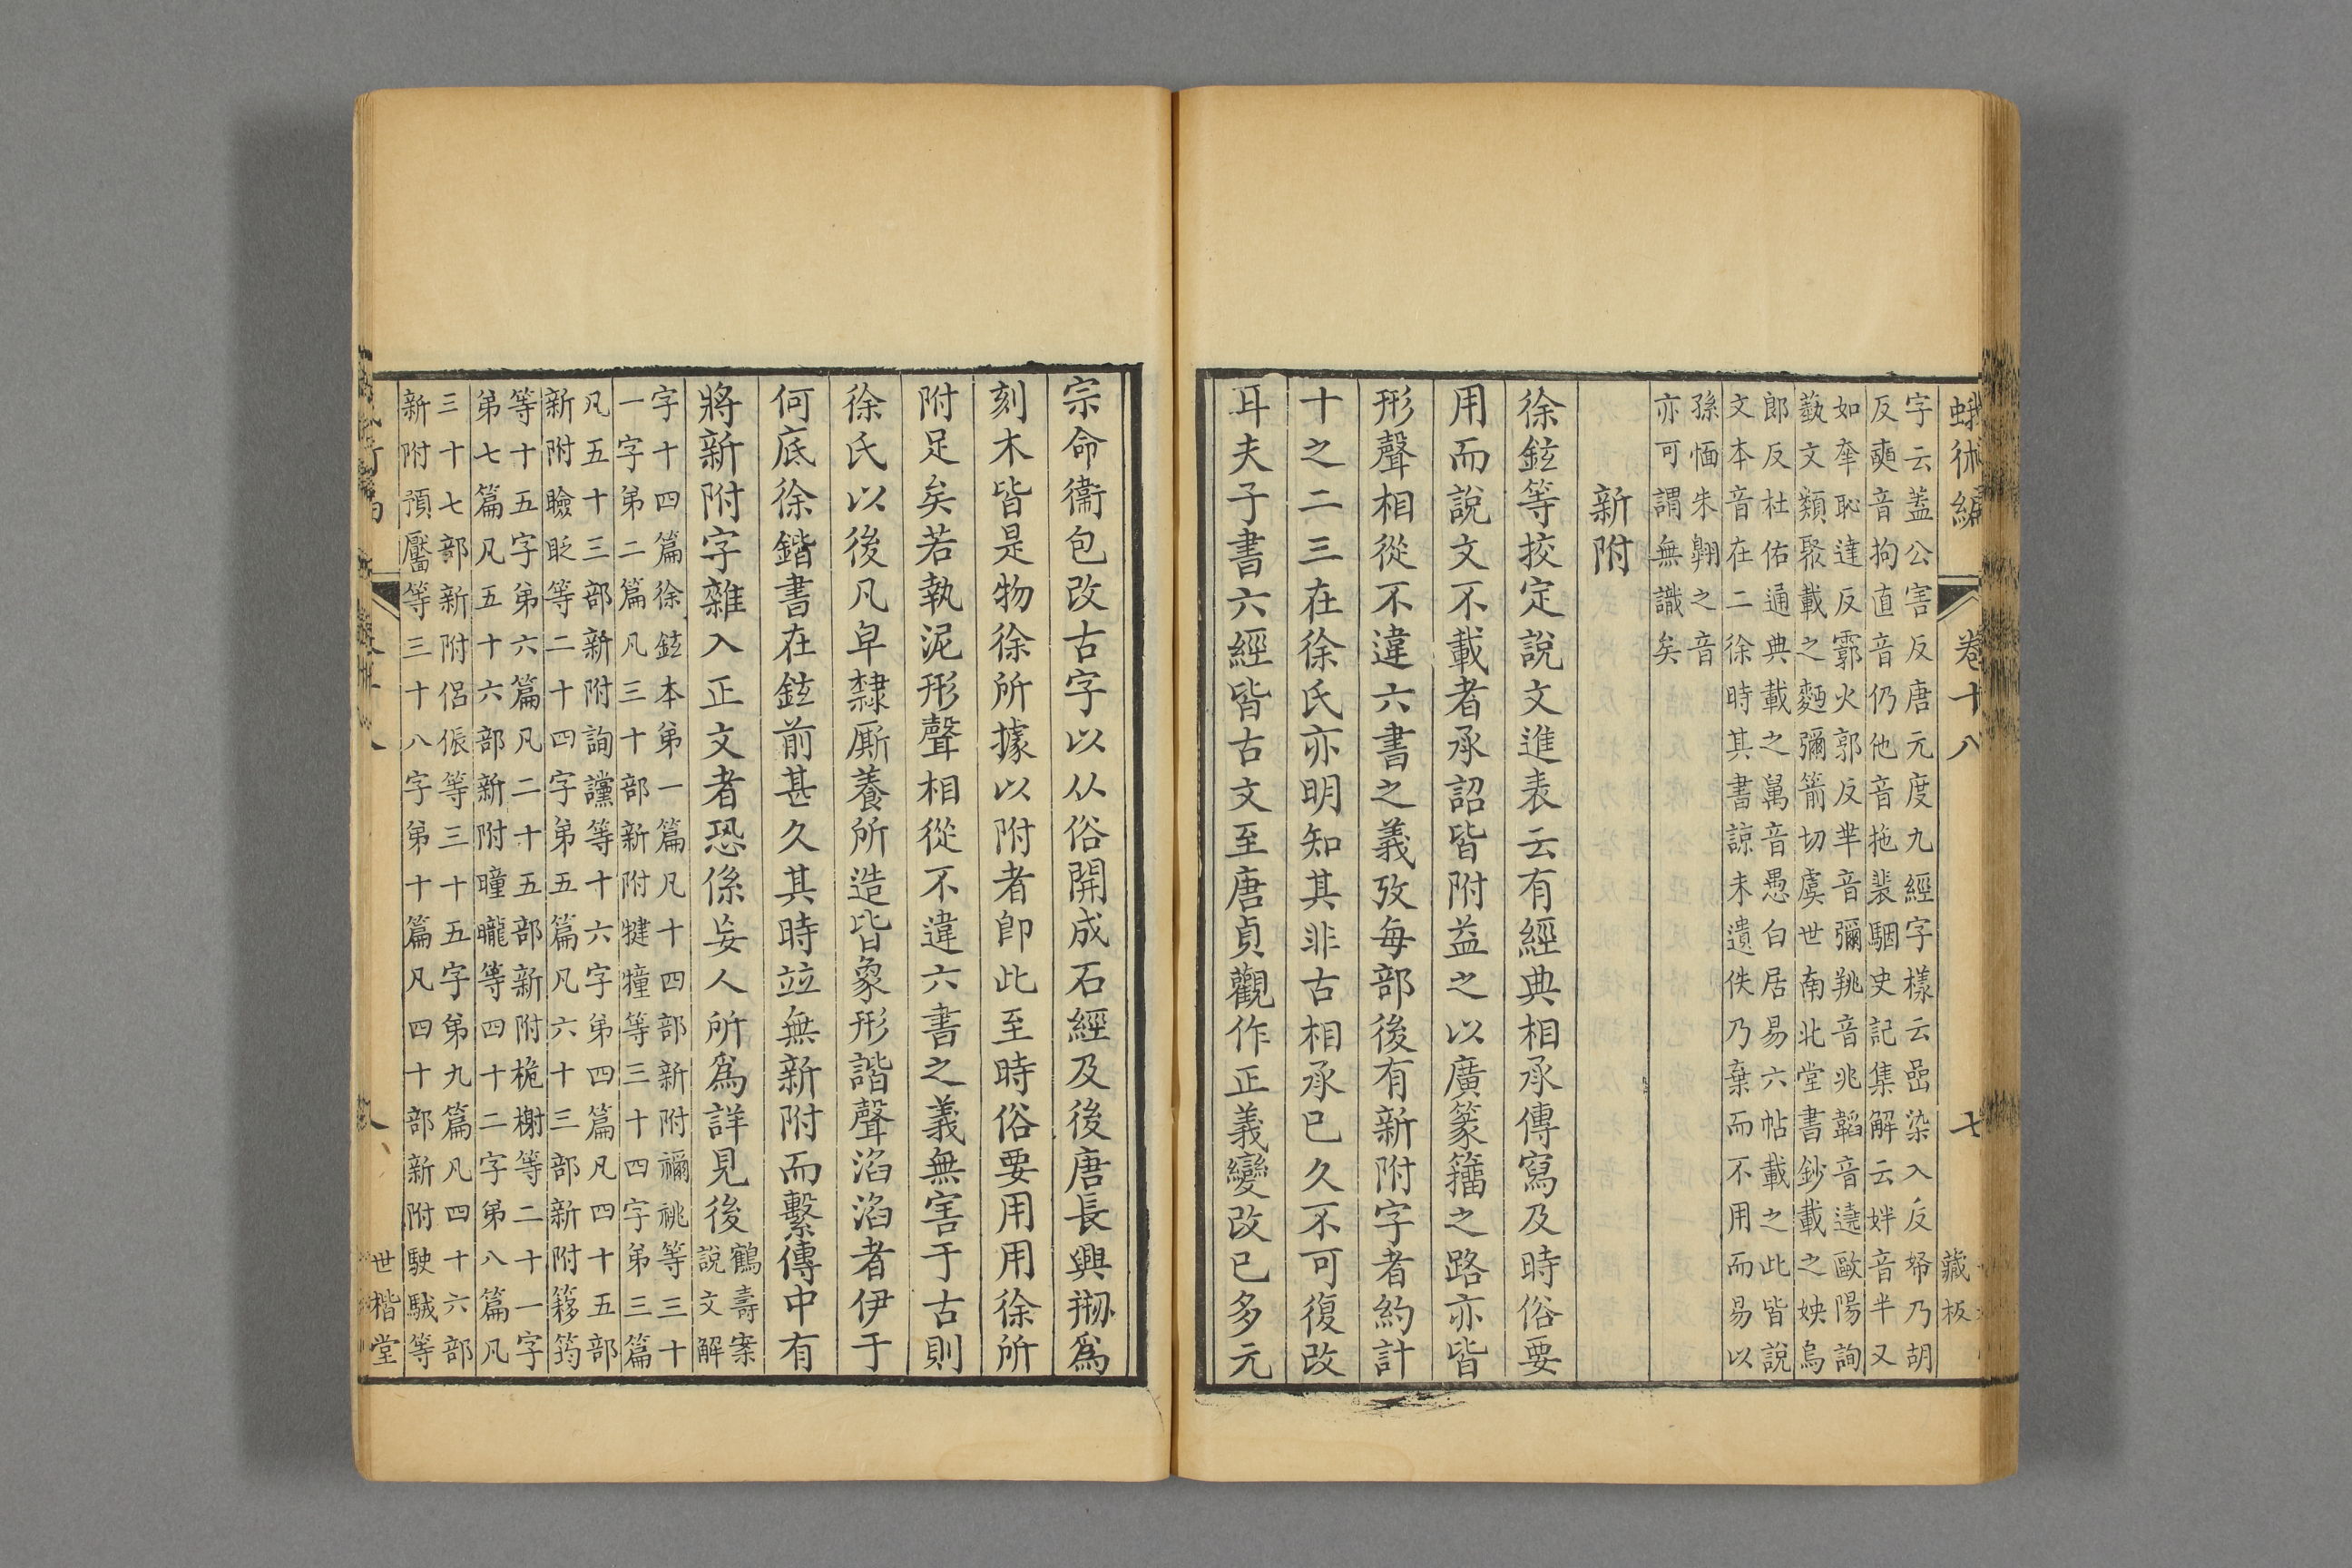 蛾術編 卷十八 七 藏板
字云蓋公害反唐元度九經字樣云喦染入反帑乃胡
反奭音拘直音仍他音拖裴駰史記集解云姅音半又
如牽恥達反霩火郭反羋音彌羪音兆韜音遶歐陽詢
蓺文類聚載之麪彌箭切虞世南北堂書鈔載之姎烏
郎反杜佑通典載之萬音愚白居易六帖載之此皆說
文本音在二徐時其書諒未遺佚乃棄而不用而易以
孫愐朱翺之音
亦可謂無識矣
新附
徐鉉等挍定說文進表云有經典相承傳寫及時俗要
用而說文不載者承詔皆附益之以廣篆籀之路亦皆
形聲相從不違六書之義攷每部後有新附字者約計
十之二三在徐氏亦明知其非古相承已久不可復改
耳夫子書六經皆古文至唐貞觀作正義變改已多元
宗命衞包改古字以从俗開成石經及後唐長興刱爲
刻木皆是物徐所據以附者卽此至時俗要用用徐所
附足矣若執泥形聲相從不違六書之義無害于古則
徐氏以後凡皁隸厮養所造皆象形諧聲滔滔者伊于
何底徐鍇書在鉉前甚久其時竝無新附而繫傳中有
將新附字雜入正文者恐係妄人所爲詳見後
鶴壽案
說文解
字十四篇徐鉉本第一篇凡十四部新附禰祧等三十
一字第二篇凡三十部新附犍犝等三十四字第三篇
凡五十三部新附詢讜等十六字第四篇凡四十五部
新附瞼眨等二十四字第五篇凡六十三部新附簃筠
等十五字第六篇凡二十五部新附桅榭等二十一字
第七篇凡五十六部新附曈曨等四十二字第八篇凡
三十七部新附侶倀等三十五字第九篇凡四十六部
新附預靨等三十八字第十篇凡四十部新附駛駥等
世楷堂